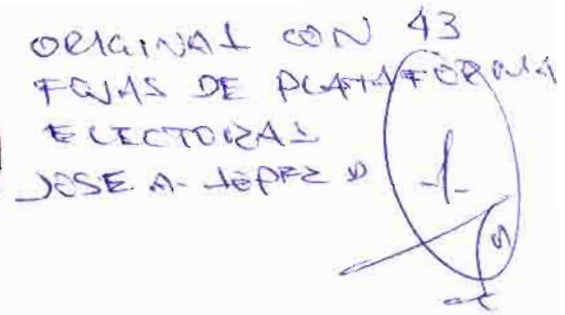 ORIGINAL CON 43
FOJAS DE PLATAFORMA
ELECTORAL
JOSE A. YEPEZ D